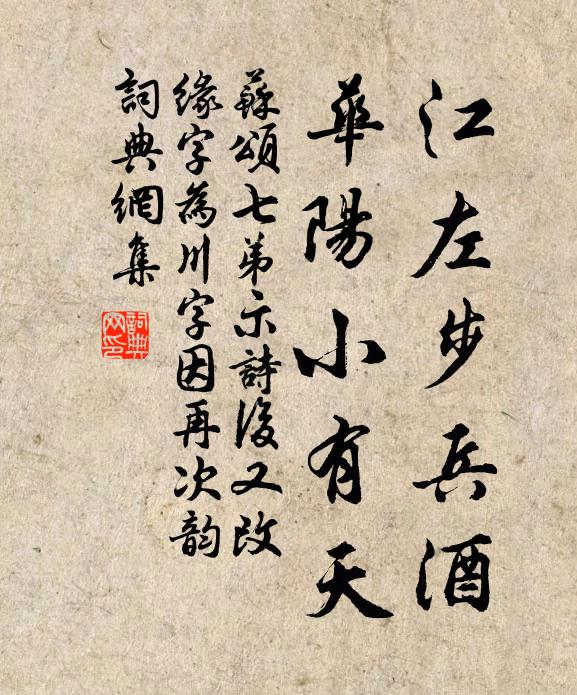 江左步兵酒
華陽小有天
蘇頌七弟示詩後又改
緣字為川字因再次韵
詞典網集
詞典
网印